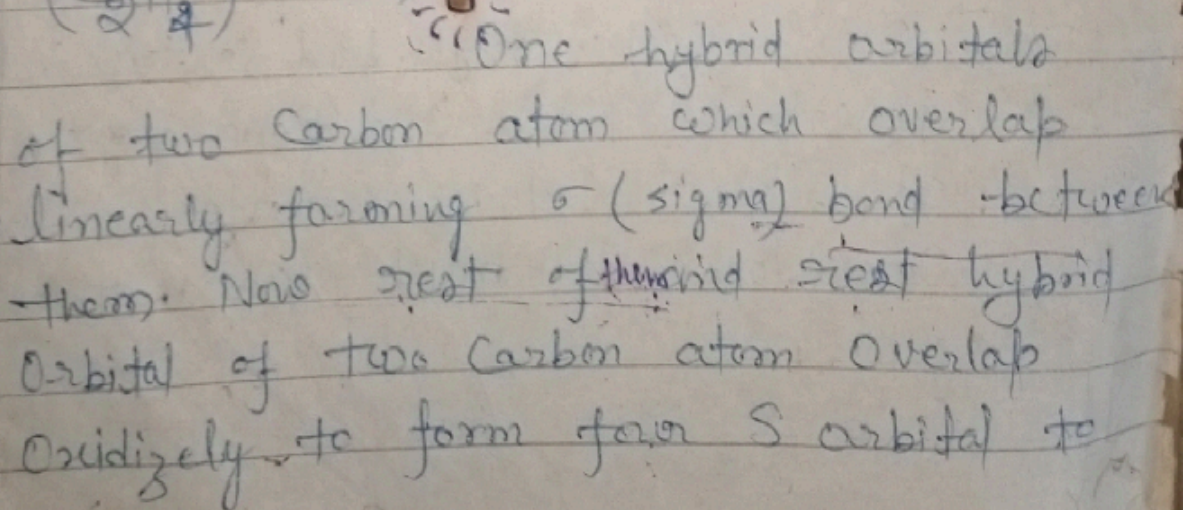 "One hybrid orbitals
of two Carbon atom which overlap
linearly farming σ (sigma) bond between
them. Now rest of hybrid
Orbital of two Carbon atom Overlap
Oxidizely to form four S orbital to